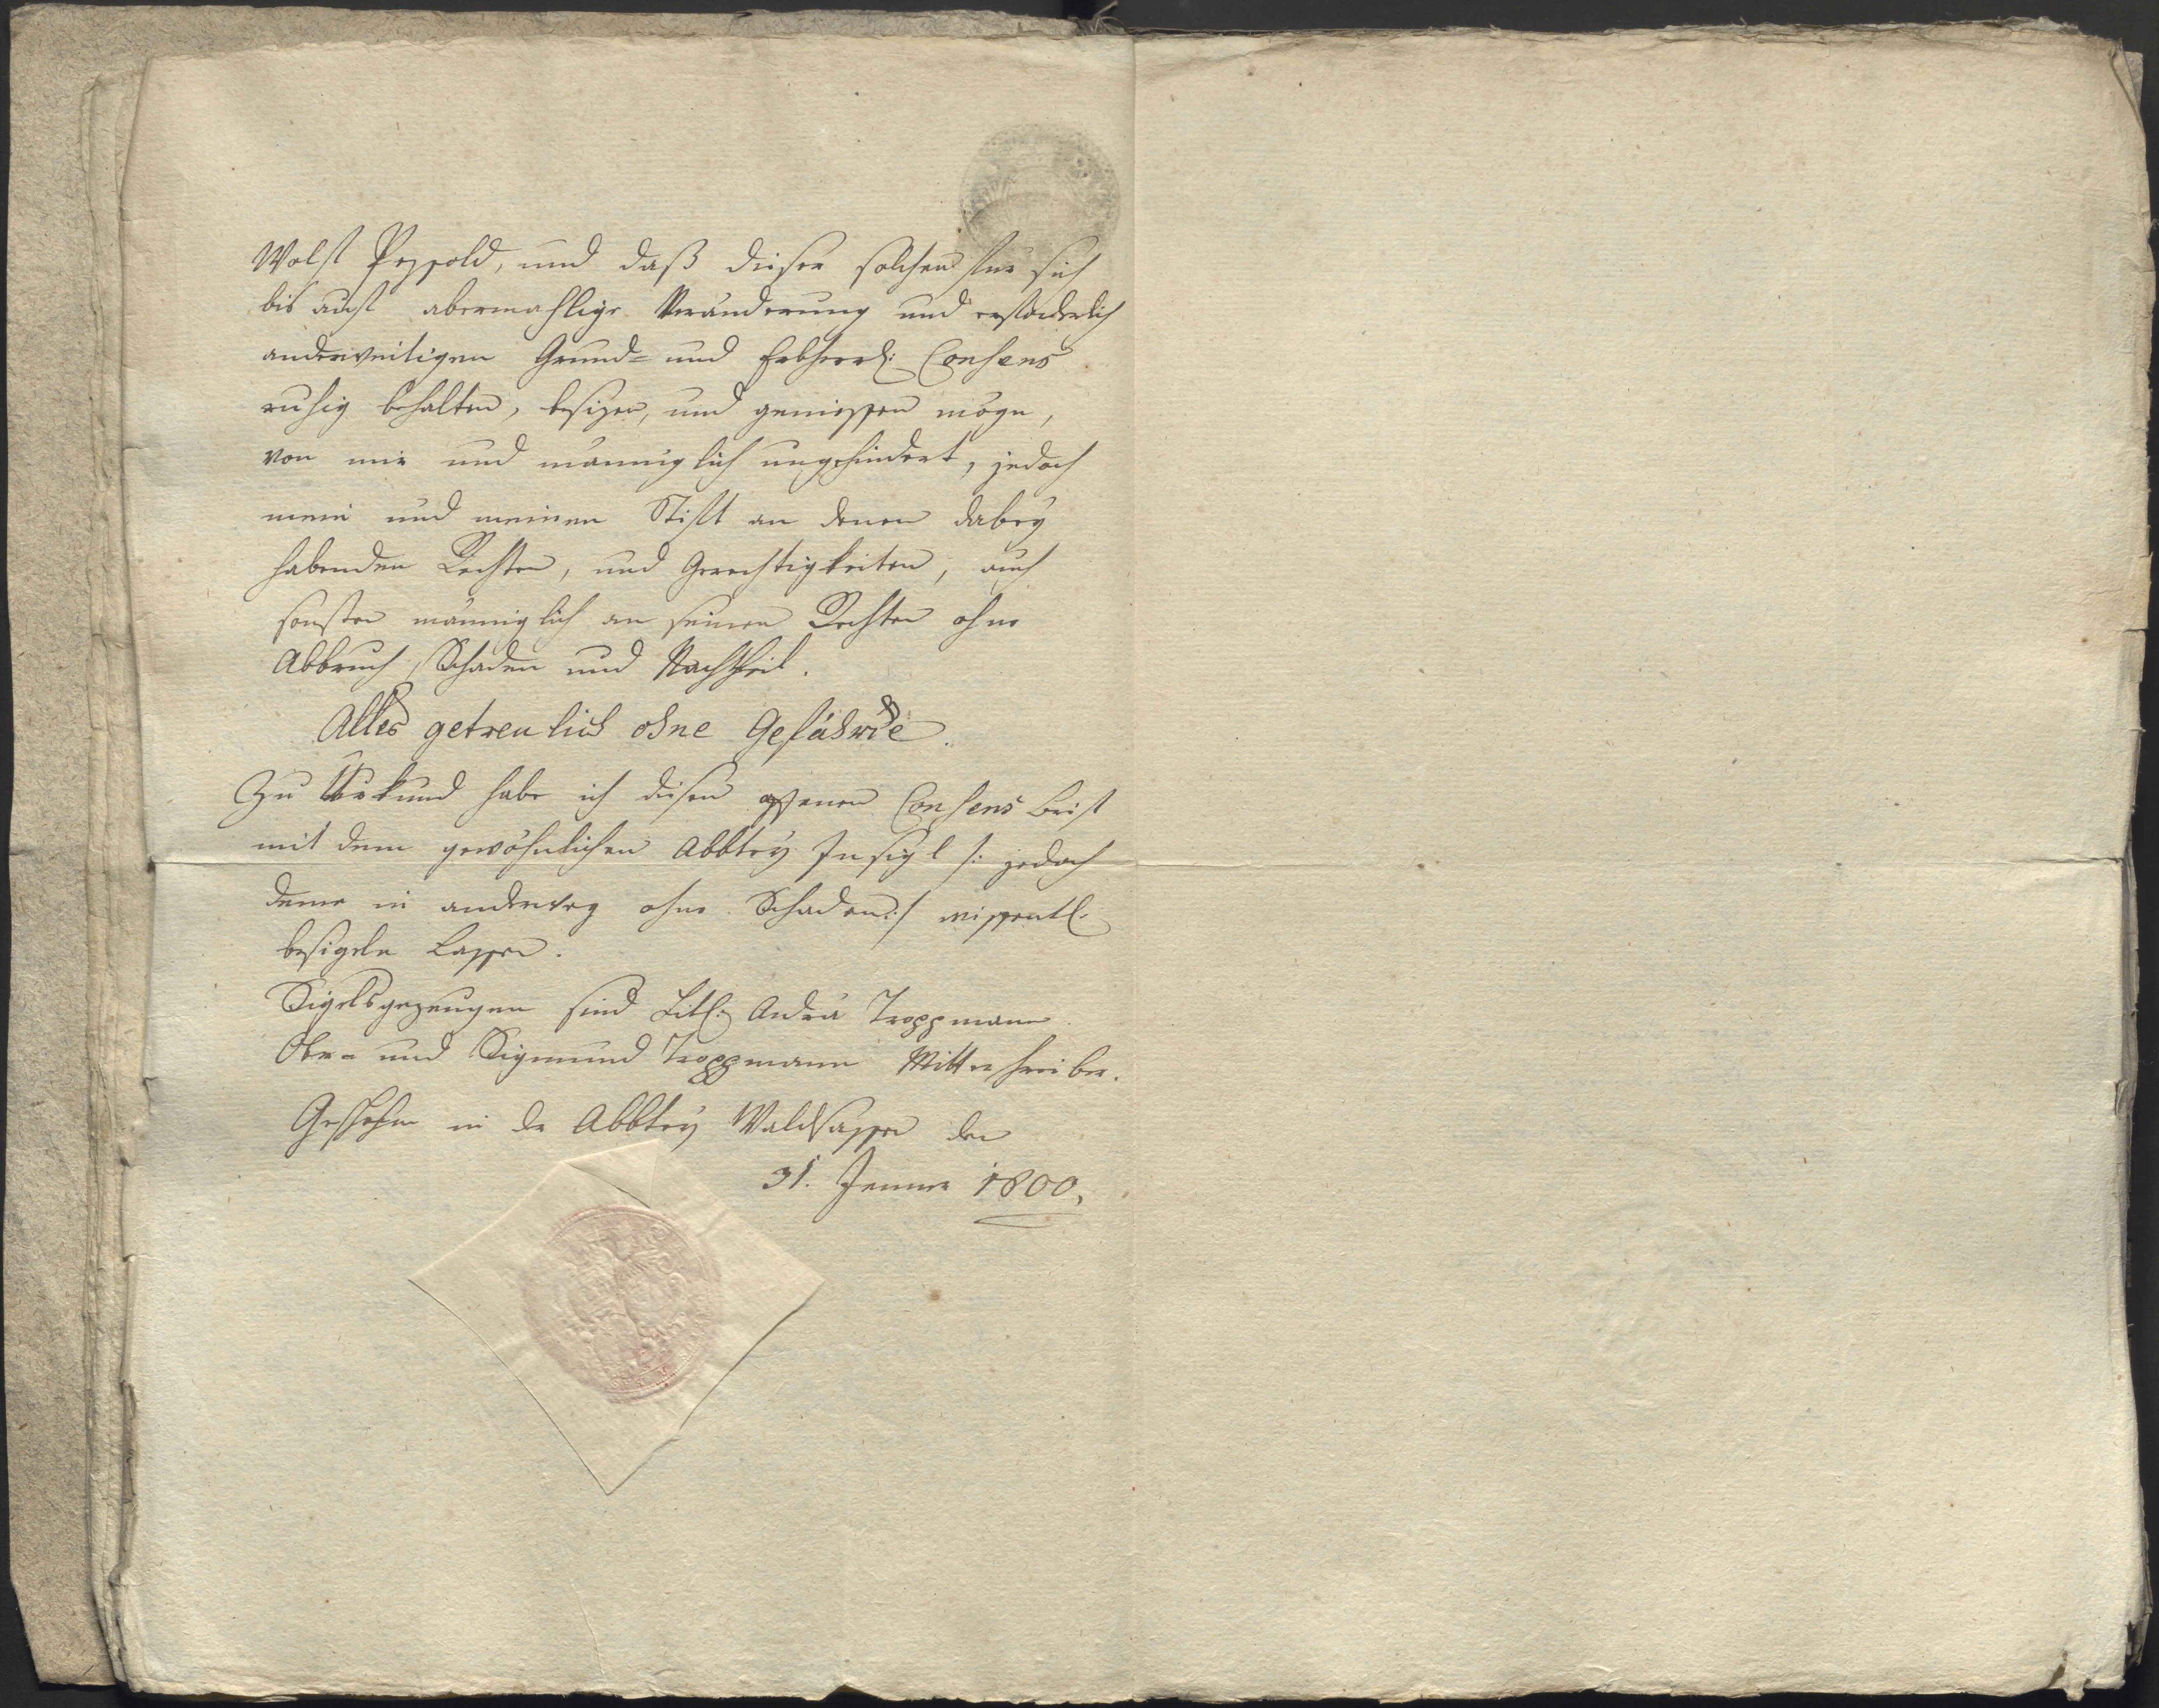 Wolf Pezold, und daß dieser solchen für sich
bis auf abermahlige Veränderung und erforderlich
anderweitigen Grund= und Erbherrl: Consens
ruhig behalten, besizen, und geniessen möge,
von mir und männiglich ungehindert, jedoch
mein und meinen Stift an denen dabey
habenden Rechten, und Gerechtigkeiten, auch
sonsten männiglich an seinen Rechten ohne
Abbruch, Schaden und Nachtheil.
Alles getreulich ohne Gefährde.
Zu Urkund habe ich diesen offenen Consens brief
mit dem gewöhnlichen Abbtey Insigl /: jedoch
deme in anderweg ohne Schaden :/ wissentl:
besigeln lassen.
Sigelsgezeugen sind Titl: Andrä Troppmann
Ober- und Sigmund Troppmann Mitterschreiber.
Geschehen in der Abbtey Waldsassen den
31. Jenner 1800.